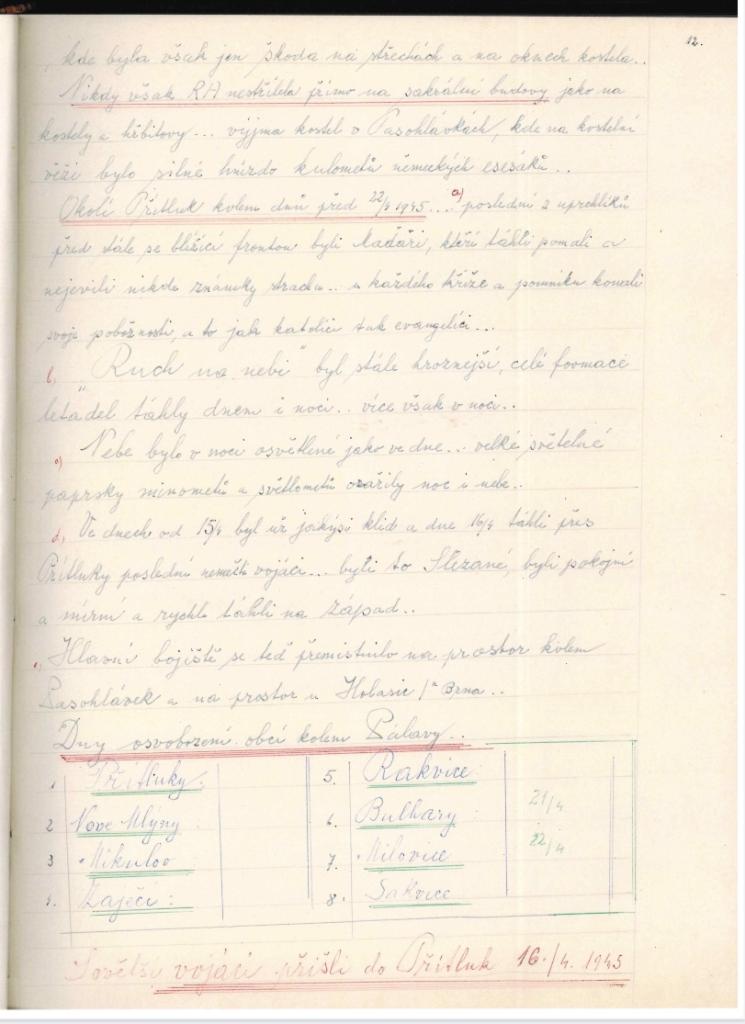 12.
, kde byla však jen škoda na střechách a na oknech kostela..
Nikdy však RA nestřílela přímo na sakrální budovy jako na
kostely a hřbitovy... vyjma kostel v Pasohlávkách, kde na kostelní
věži bylo silné hnízdo kulometů německých esesáků..
Okolí Přítluk kolem dnů před 22/4 1945.... a) poslední z uprchlíků
před stále se blížící frontou byli Maďaři, kteří táhli pomalu a
nejevili nikde známky strachu.. u každého kříže a pomníku konali
svoje pobožnosti, a to jak katolíci tak evangelíci...
b, "Ruch na nebi" byl stále hroznější, celé formace
letadel táhly dnem i nocí.. více však v noci..
c) Nebe bylo v noci osvětlené jako ve dne... velké světelné
paprsky minometů a světlometů ozářily noc i nebe..
d, Ve dnech od 15/4 byl už jakýsi klid a dne 16/4 táhli přes
Přítluky poslední němečtí vojáci... byli to Slezané, byli pokojní
a mírní a rychle táhli na západ..
e, Hlavní bojiště se teď přemístnilo na prostor kolem
Pasohlávek a na prostor u Hobasic Brna..
Dny osvobození obcí kolem Pálavy..
1 Přítluky: 5. Rakvice:
2 Nové Mlýny: 6. Bulhary 21/4
3 Mikulov 7. Milovice 22/4
4. Zaječí: 8. Šakvice
Sovětští vojáci přišli do Přítluk 16./4. 1945